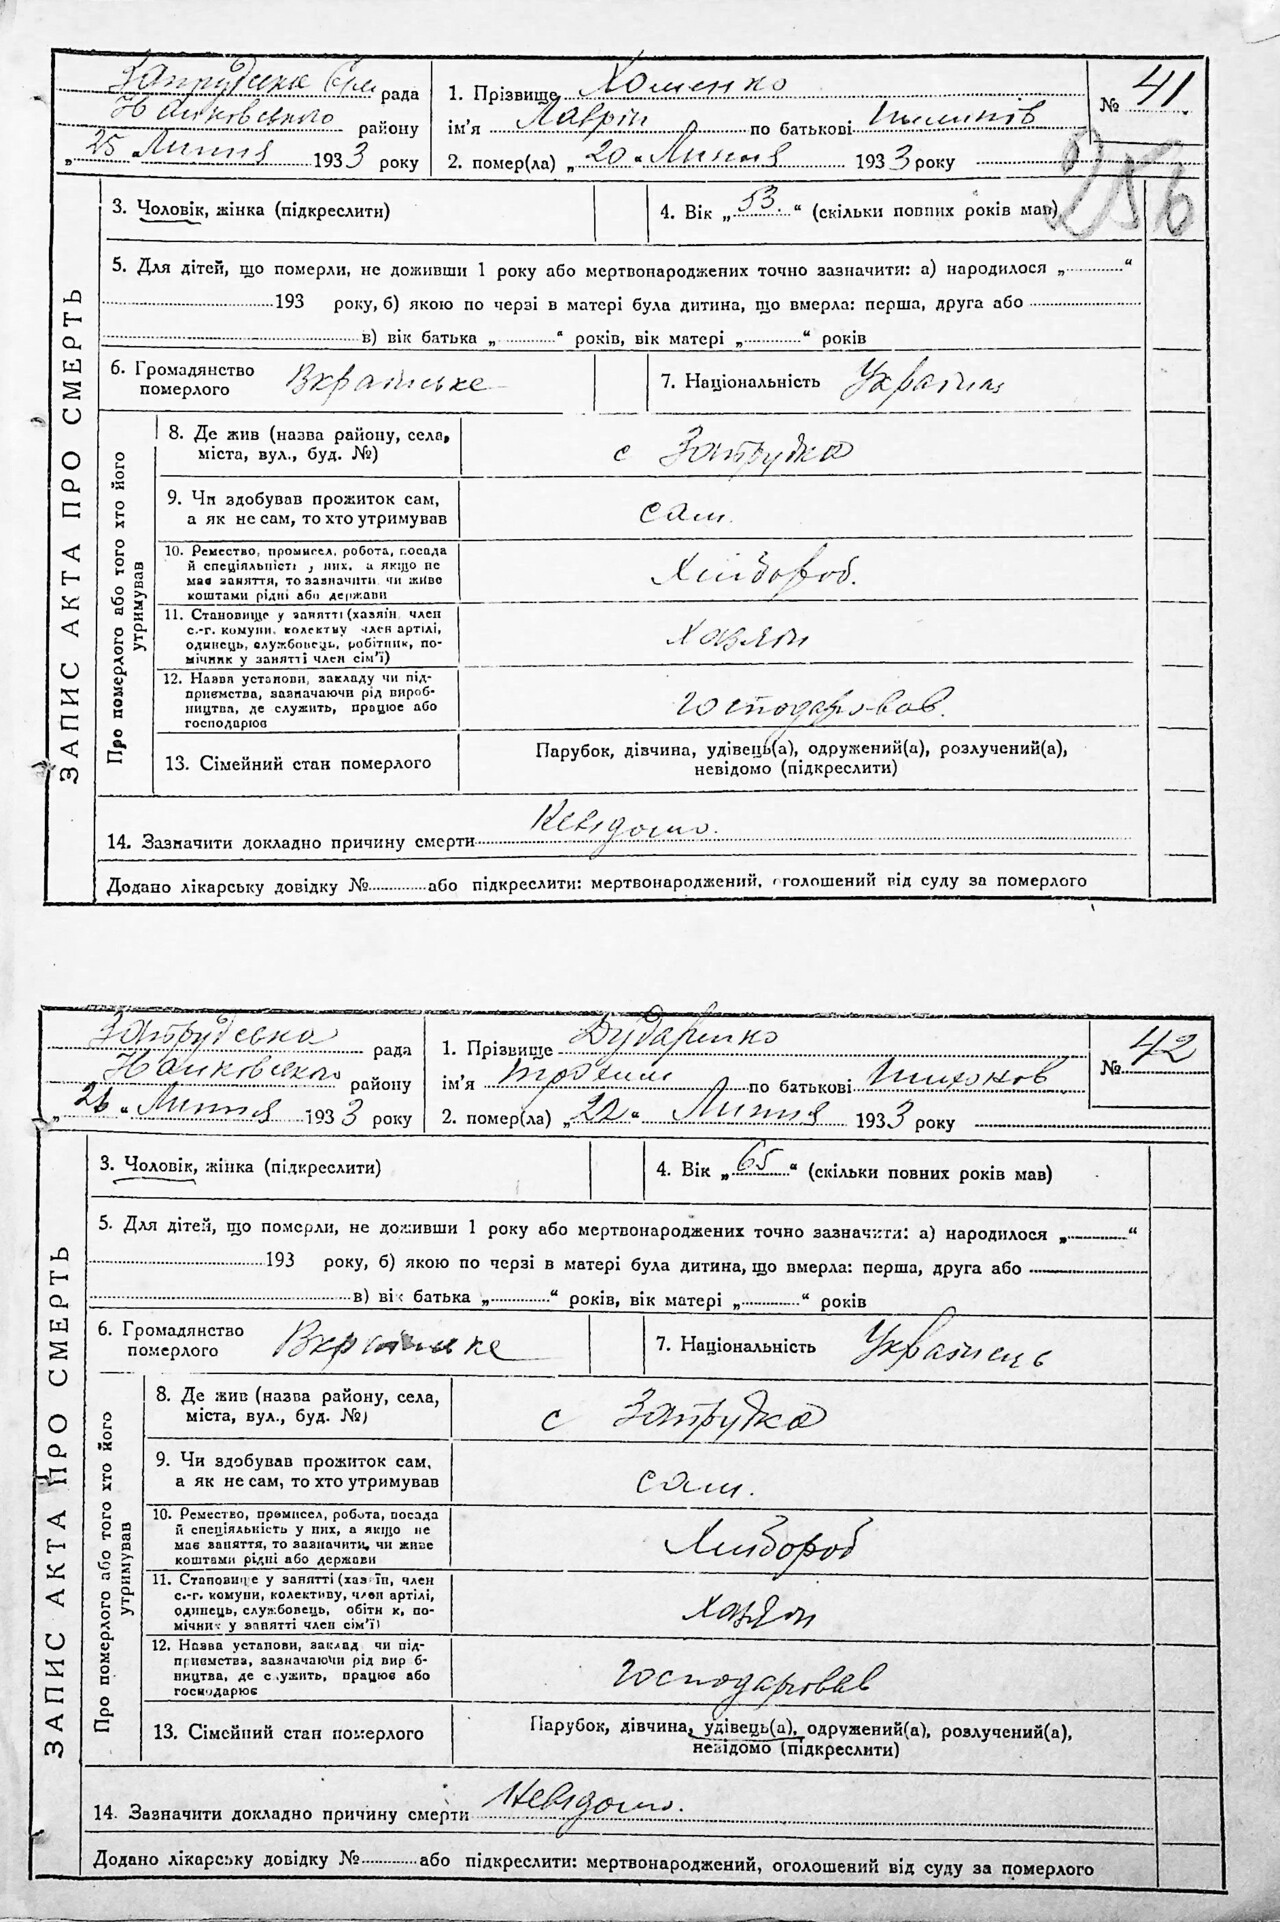 Запрудська рада
Наиковського району
„25“ Липня 1933 року
1. Прізвище Хоменко
ім'я Лаврін по батькові
2. помер(ла) „20“ Липня 1933 року
№ 41
256
ЗАПИС АКТА ПРО СМЕРТЬ
3. Чоловік, жінка (підкреслити)
4. Вік „53“ (скільки повних років мав)
5. Для дітей, що померли, не доживши 1 року або мертвонароджених точно зазначити: а) народилося „ “
193 року, б) якою по черзі в матері була дитина, що вмерла: перша, друга або
в) вік батька „ “ років, вік матері „ “ років
6. Громадянство
померлого Вкраїнське
7. Національність Українец
Про померлого або того хто його
утримував
8. Де жив (назва району, села,
міста, вул., буд. №)
с Запрудка
9. Чи здобував прожиток сам,
а як не сам, то хто утримував
сам.
10. Ремество, промисел, робота, посада
й спеціяльність у них, а якщо не
має заняття, то зазначити чи живе
коштами рідні або держави
Хлібороб.
11. Становище у занятті (хазяїн член
с.-г. комуни, колективу член артілі,
одинець, службовець, робітник, по-
мічник у занятті член сім'ї)
хазяїн
12. Назва установи, закладу чи під-
приємства, зазначаючи рід вироб-
ництва, де служить, працює або
господарює
господарював.
13. Сімейний стан померлого
Парубок, дівчина, удівець(а), одружений(а), розлучений(а),
невідомо (підкреслити)
14. Зазначити докладно причину смерти Невідомо.
Додано лікарську довідку № або підкреслити: мертвонароджений, оголошений від суду за померлого
Запрудська рада
Наиковського району
„26“ Липня 1933 року
1. Прізвище Дударенко
ім'я Трохим по батькові Тихонов
2. помер(ла) „22“ Липня 1933 року
№ 42
ЗАПИС АКТА ПРО СМЕРТЬ
3. Чоловік, жінка (підкреслити)
4. Вік „65“ (скільки повних років мав)
5. Для дітей, що померли, не доживши 1 року або мертвонароджених точно зазначити: а) народилося „ “
193 року, б) якою по черзі в матері була дитина, що вмерла: перша, друга або
в) вік батька „ “ років, вік матері „ “ років
6. Громадянство
померлого Вкраїнське
7. Національність Українець
Про померлого або того хто його
утримував
8. Де жив (назва району, села,
міста, вул., буд. №)
с Запрудка
9. Чи здобував прожиток сам,
а як не сам, то хто утримував
сам.
10. Ремество, промисел, робота, посада
й спеціяльність у них, а якщо не
має заняття, то зазначити, чи живе
коштами рідні або держави
Хлібороб
11. Становище у занятті (хазяїн, член
с.-г. комуни, колективу, член артілі,
одинець, службовець, робітник, по-
мічник у занятті член сім'ї)
хазяїн
12. Назва установи, заклад чи під-
приємства, зазначаючи рід вироб-
ництва, де служить, працює або
господарює
господарював
13. Сімейний стан померлого
Парубок, дівчина, удівець(а), одружений(а), розлучений(а),
невідомо (підкреслити)
14. Зазначити докладно причину смерти Невідомо.
Додано лікарську довідку № або підкреслити: мертвонароджений, оголошений від суду за померлого